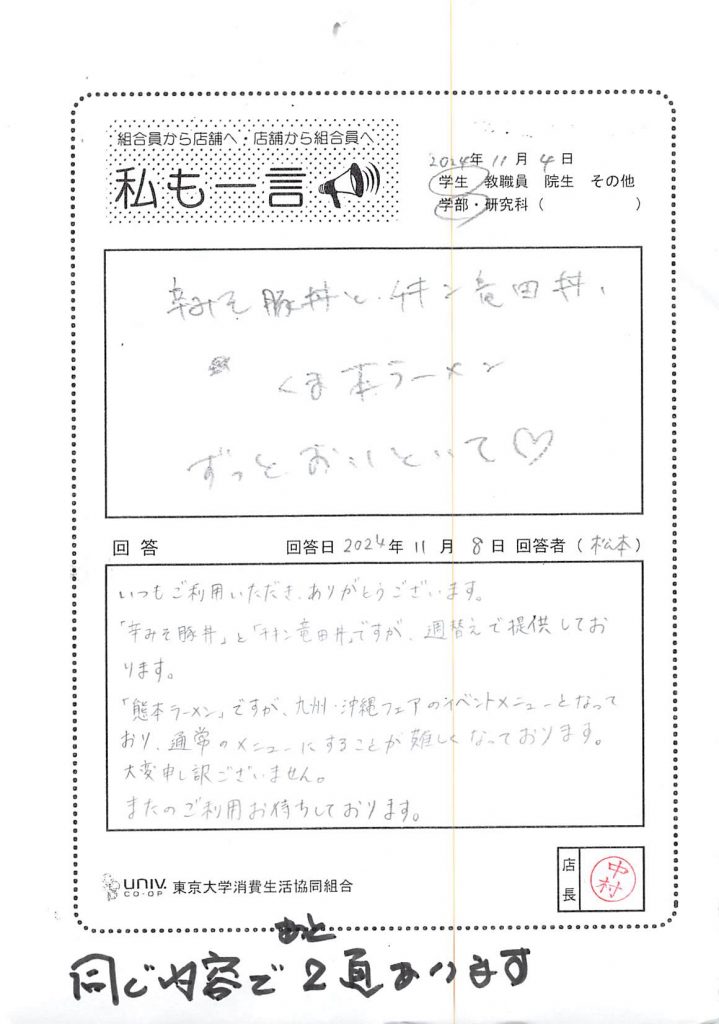 組合員から店舗へ・店舗から組合員へ
私も一言
2024年 11月 4日
学生 教職員 院生 その他
学部・研究科（ ）
辛みそ豚丼と、チキン竜田丼、
くま本ラーメン
ずっとおいといて♡
回答 回答日 2024年 11月 8日 回答者（松本）
いつもご利用いただき、ありがとうございます。
「辛みそ豚丼」と「チキン竜田丼」ですが、週替えで提供してお
ります。
「熊本ラーメン」ですが、九州・沖縄フェアのイベントメニューとなって
おり、通常のメニューにすることが難しくなっております。
大変申し訳ございません。
またのご利用お待ちしております。
UNIV. CO-OP 東京大学消費生活協同組合
店長 中村
あと
同じ内容で2頁あります